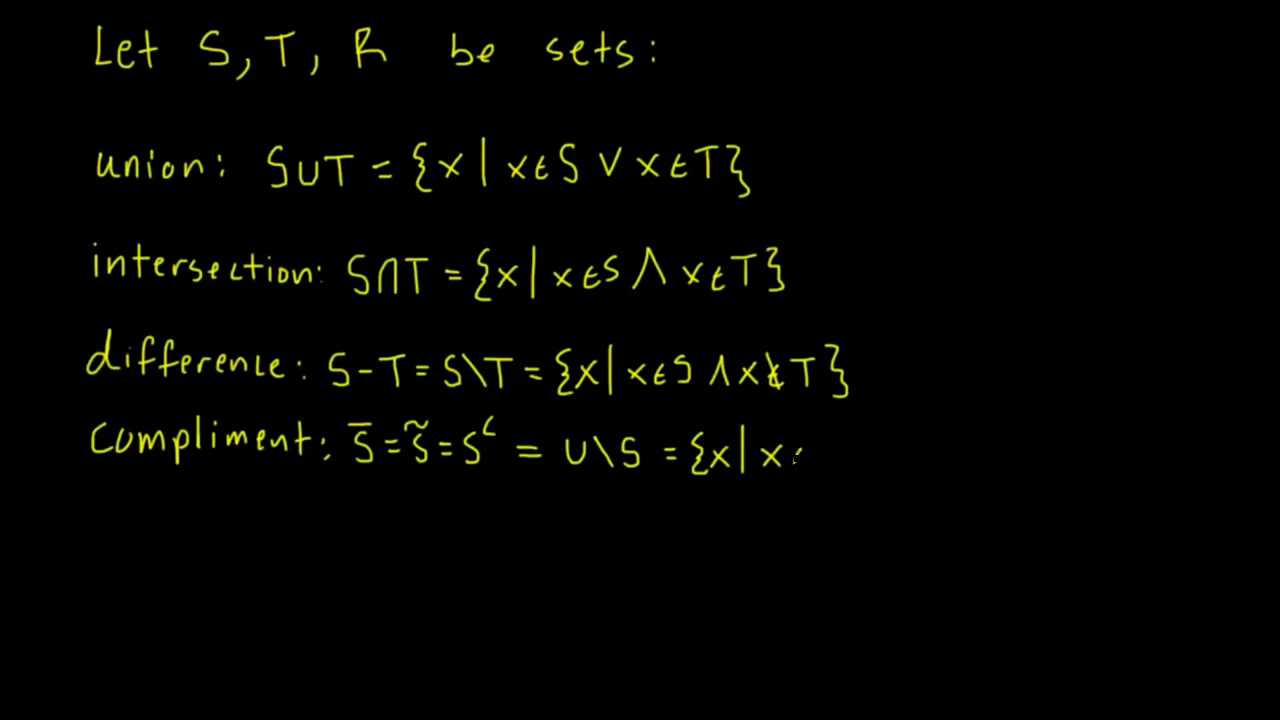 Let S, T, R be sets:
union: S∪T = {x | x∈S ∨ x∈T}
intersection: S∩T = {x | x∈S ∧ x∈T}
difference: S-T = S\T = {x | x∈S ∧ x∉T}
compliment: S̅ = S̃ = Sᶜ = U\S = {x | x